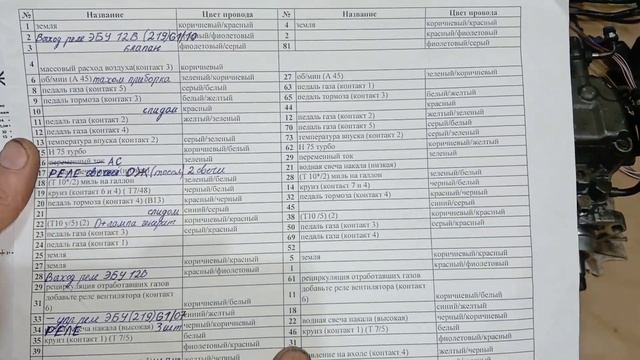 № Название Цвет провода № Название Цвет провода
1 земля коричневый/красный 4 земля коричневый/красный
2 Выход реле ЭБУ 12В (219/G1/10 красный/фиолетовый 2 красный/фиолетовый
3 клапан фиолетовый/серый 81 фиолетовый/серый
4 массовый расход воздуха(контакт 3) коричневый/белый
6 об/мин (А 45) тахом приборка зеленый/коричневый 27 об/мин (А 45) зеленый/коричневый
8 педаль газа (контакт 5) серый/белый 63 педаль газа (контакт 1)
9 педаль тормоза (контакт 3) белый/желтый 65 педаль тормоза (контакт 3) белый/желтый
10 спидом красный 44 красный
11 педаль газа (контакт 2) желтый/зеленый 12 педаль газа (контакт 4) желтый/зеленый
12 педаль газа (контакт 4) 70 педаль газа (контакт 5) серый/белый
13 температура впуска (контакт 2) серый/зеленый 73 температура впуска (контакт 2) серый/зеленый
15 Н 75 турбо коричневый/желтый 62 Н 75 турбо коричневый/желтый
16 переменный ток АС зеленый 29 переменный ток зеленый
17 РЕЛЕ свечей ОЖ 2 свечи 21 водная свеча накала (низкая)
18 (Т 10*/2) миль на галлон зеленый/белый 28 (Т 10*/2) миль на галлон зеленый/белый
19 круиз (контакт 6 и 4) ( Т7/48) черный/белый 14 круиз (контакт 7 и 4) черный/белый
20 педаль тормоза (контакт 4) (В13) красный/черный 32 педаль тормоза (контакт 4) красный/черный
21 спидом синий/серый 45 синий/серый
22 (Т10 у/5) (2) коричневый/красный 38 (Т10 /5) (2) коричневый/красный
23 педаль газа (контакт 3) серый/красный 50 педаль газа (контакт 3) серый/красный
24 педаль газа (контакт 1) 69 педаль газа (контакт 4)
52
25 земля коричневый/красный 5 земля коричневый/красный
27 земля коричневый/красный 1 красный/фиолетовый
28 Выход реле ЭБУ 12В красный/фиолетовый
29 рециркуляция отработавших газов 61 рециркуляция отработавших газов
31 добавьте реле вентилятора (контакт 6) коричневый/белый 11 добавьте реле вентилятора (контакт 6) коричневый/белый
32 синий/желтый 18 синий/желтый
33 – упр. реле ЭБУ(219/G1/07 черный/коричневый 22 водная свеча накала (высокая) черный/коричневый
34 РЕЛЕ свеча накала (высокая) 3 шт белый 46 круиз (контакт 1) (Т 7/5) белый
35 круиз (контакт 1) ( Т 7/5) 31